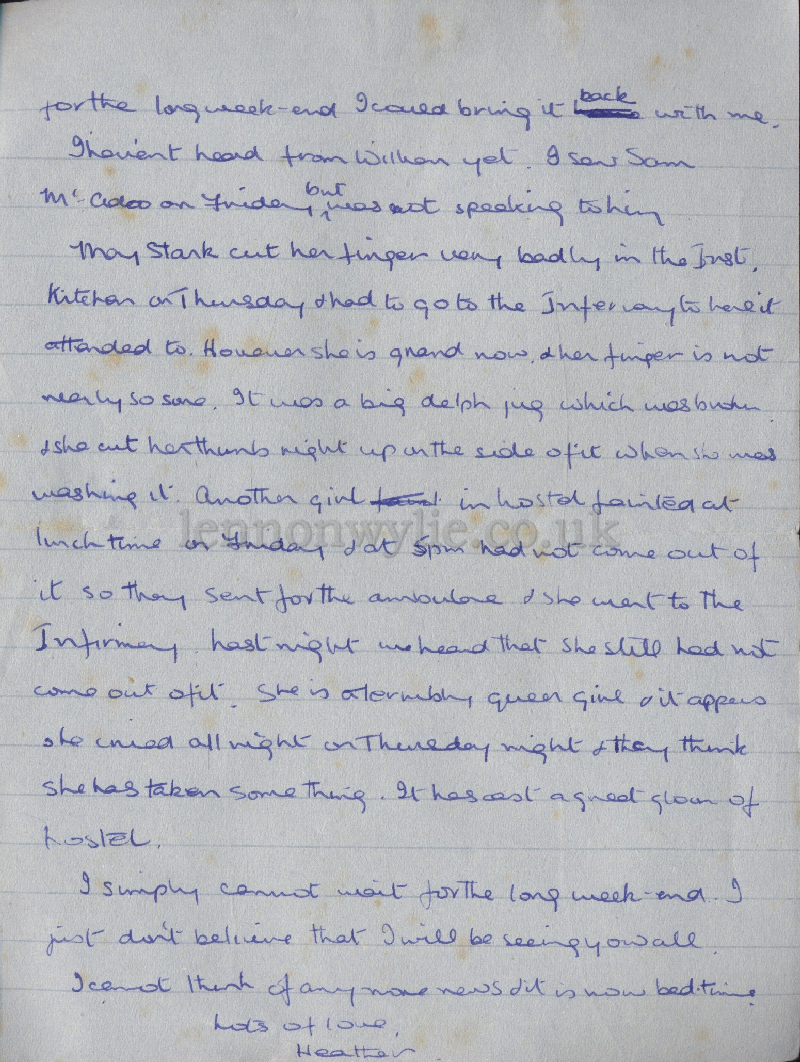 for the long week-end I could bring it back with me.
I haven't heard from William yet. I saw Sam
Mc Adoo on Friday, but was not speaking to him
May Stark cut her finger very badly in the Inst.
Kitchen on Thursday & had to go to the Infirmary to have it
attended to. However she is grand now, & her finger is not
nearly so sore. It was a big delph jug which was broken
& she cut her thumb right up on the side of it when she was
washing it. Another girl in hostel fainted at
lunch time on Friday & at 5pm had not come out of
it so they sent for the ambulance & she went to the
Infirmary. Last night we heard that she still had not
come out of it. She is a terribly queer girl & it appears
she cried all night on Thursday night & they think
she has taken something. It has cast a great gloom of
hostel.
I simply cannot wait for the long week-end. I
just don't believe that I will be seeing you all.
I cannot think of any more news & it is now bed-time
Lots of love,
Heather
lennonwylie.co.uk